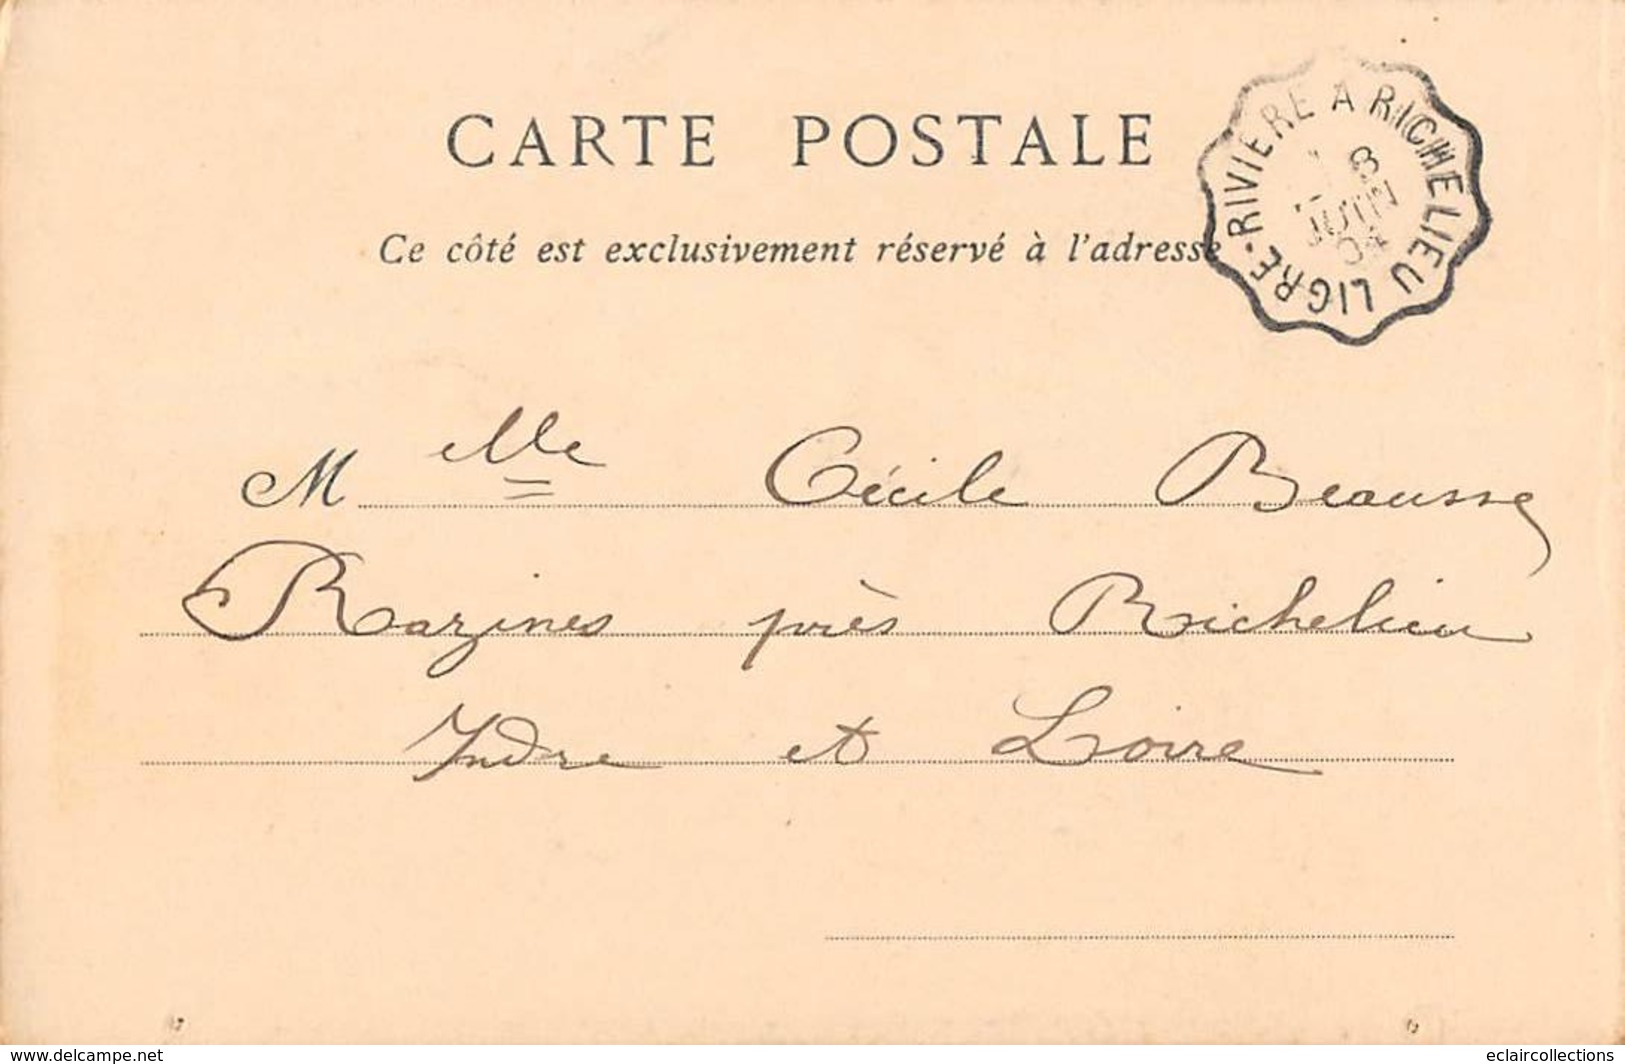 CARTE POSTALE
Ce côté est exclusivement réservé à l'adresse
LIGRE-RIVIERE A RICHELIEU
8
JUIN
04
M elle Cécile Beausse
Razines près Richelieu
Indre et Loire
www.delcampe.net
eclaircollections